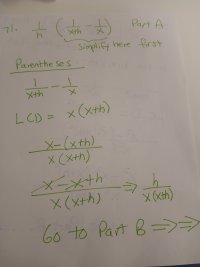 71. 1/h (1/(x+h) - 1/x) Part A
Simplify here first
Parentheses
1/(x+h) - 1/x
LCD = x(x+h)
x-(x+h)/x(x+h)
x-x+h/x(x+h) ⇒ h/x(x+h)
Go to Part B ⇒⇒